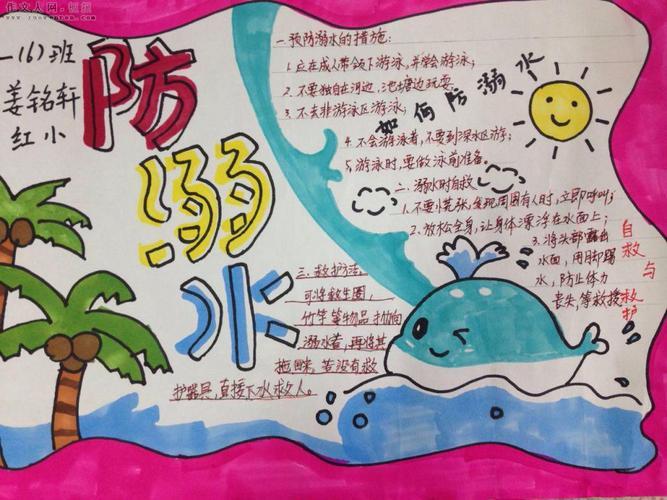 作文人网
一(6)班
姜铭轩
红小
防
溺
水
一、预防溺水的措施:
1.应在成人带领下游泳,并学会游泳;
2.不要独自在河边、池塘边玩耍
3.不去非游泳区游泳;
如何防溺水
4.不会游泳者,不要到深水区游;
5.游泳时,要做泳前准备。
二、溺水时自救
1.不要慌张,发现周围有人时,立即呼叫;
2.放松全身,让身体漂浮在水面上;
3.将头部露出
水面,用脚踢
水,防止体力
丧失,等救援
自救与救护
三、救护方法
可将救生圈,
竹竿等物品抛向
溺水者,再将其
拖回来,若没有救
护器具,直接下水救人。